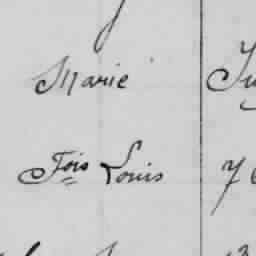 Marie
Fois Louis